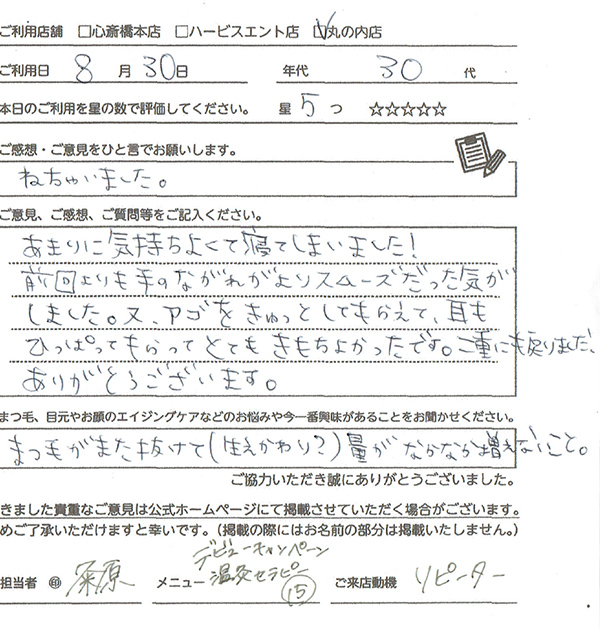 ご利用店舗 □心斎橋本店 □ハービスエント店 ☑丸の内店
ご利用日 8月30日 年代 30代
本日のご利用を星の数で評価してください。 星5つ ☆☆☆☆☆
ご感想・ご意見をひと言でお願いします。
ねちゃいました。
ご意見、ご感想、ご質問等をご記入ください。
あまりに気持ちよくて寝てしまいました!
前回よりも手のながれがよりスムーズだった気が
しました。又、アゴをきゅっとしてもらえて、耳も
ひっぱってもらってとてもきもちよかったです。二重にも戻りました、
ありがとうございます。
まつ毛、目元やお顔のエイジングケアなどのお悩みや今一番興味があることをお聞かせください。
まつ毛がまた抜けて(生えかわり?)量がなかなか増えないこと。
ご協力いただき誠にありがとうございました。
きました貴重なご意見は公式ホームページにて掲載させていただく場合がございます。
めご了承いただけますと幸いです。(掲載の際にはお名前の部分は掲載いたしません。)
デビューキャンペーン
担当者 ㊞ 原 メニュー 温灸セラピー ⑮ ご来店動機 リピーター